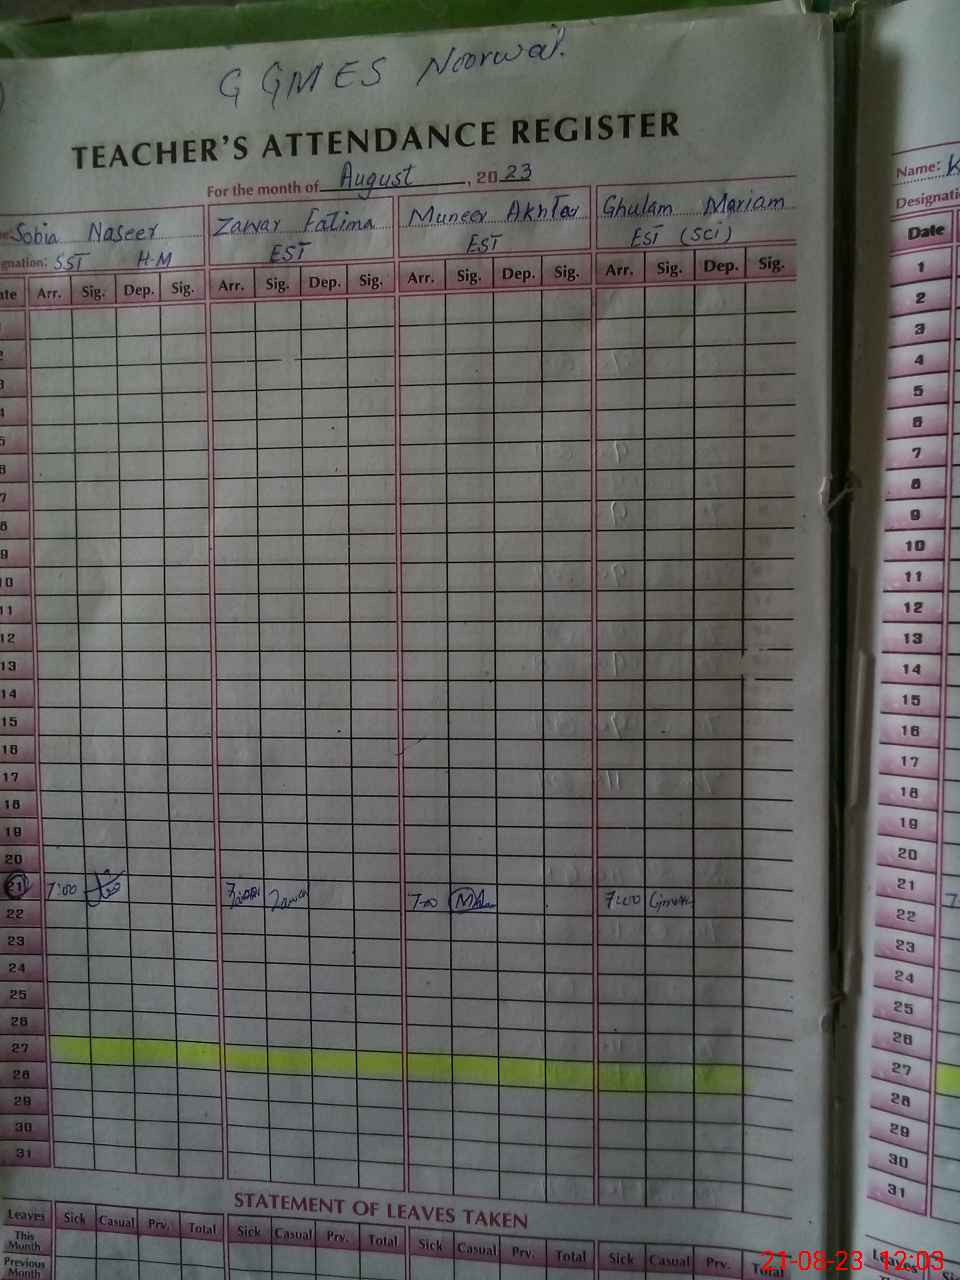 G GMES Noorwal.
TEACHER'S ATTENDANCE REGISTER
For the month of August, 2023
Sobia Naseer Zawar Fatima Muneer Akhtar Ghulam Mariam
gnation: SST H-M EST EST EST (Sci)
ate Arr. Sig. Dep. Sig. Arr. Sig. Dep. Sig. Arr. Sig. Dep. Sig. Arr. Sig. Dep. Sig.
1
2
3
4
5
6
7
8
9
10
11
12
13
14
15
16
17
18
19
20
21 7:00 7:00 7:00
22
23
24
25
26
27
28
29
30
31
STATEMENT OF LEAVES TAKEN
Leaves Sick Casual Prv. Total Sick Casual Prv. Total Sick Casual Prv. Total Sick Casual Prv. Total
This Month
Previous Month
Name: K
Designati
Date
1
2
3
4
5
6
7
8
9
10
11
12
13
14
15
16
17
18
19
20
21
22
23
24
25
26
27
28
29
30
31
21-08-23 12:03